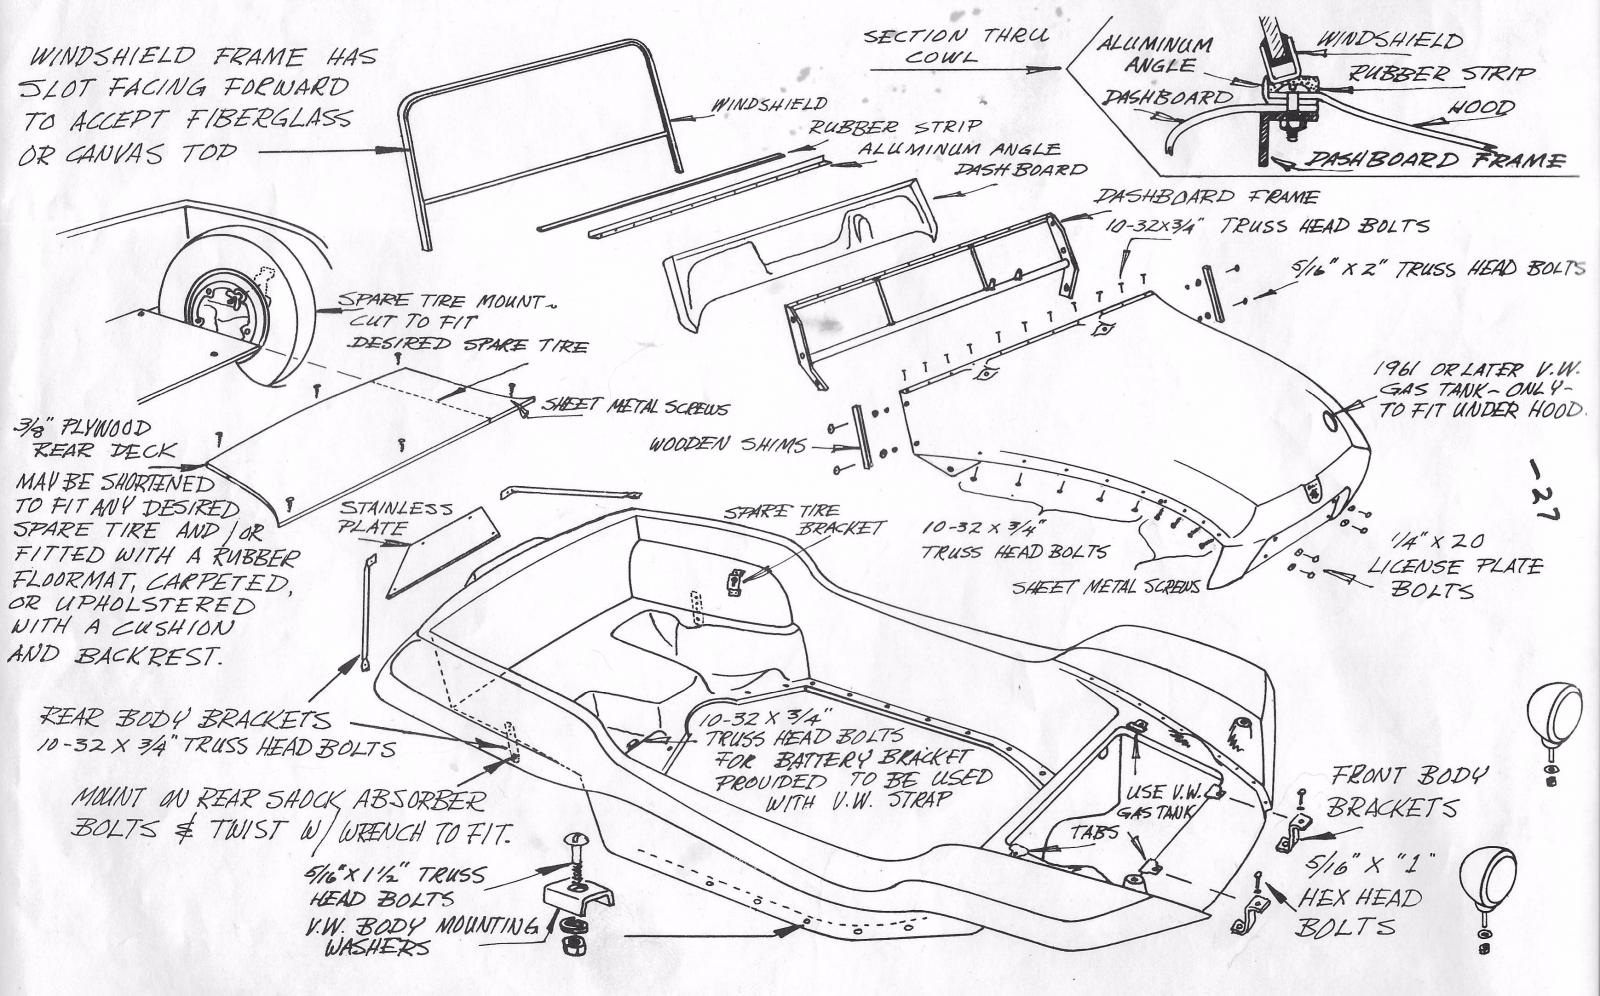 WINDSHIELD FRAME HAS
SLOT FACING FORWARD
TO ACCEPT FIBERGLASS
OR CANVAS TOP
WINDSHIELD
RUBBER STRIP
ALUMINUM ANGLE
DASHBOARD
SECTION THRU
COWL
ALUMINUM
ANGLE
DASHBOARD
WINDSHIELD
RUBBER STRIP
HOOD
DASHBOARD FRAME
DASHBOARD FRAME
10-32X3/4" TRUSS HEAD BOLTS
5/16" X 2" TRUSS HEAD BOLTS
SPARE TIRE MOUNT~
CUT TO FIT
DESIRED SPARE TIRE
SHEET METAL SCREWS
3/8" PLYWOOD
REAR DECK
MAY BE SHORTENED
TO FIT ANY DESIRED
SPARE TIRE AND/OR
FITTED WITH A RUBBER
FLOORMAT, CARPETED,
OR UPHOLSTERED
WITH A CUSHION
AND BACKREST.
1961 OR LATER V.W.
GAS TANK~ONLY~
TO FIT UNDER HOOD.
WOODEN SHIMS
-27
STAINLESS
PLATE
SPARE TIRE
BRACKET
10-32 X 3/4"
TRUSS HEAD BOLTS
SHEET METAL SCREWS
1/4" X 20
LICENSE PLATE
BOLTS
REAR BODY BRACKETS
10-32 X 3/4" TRUSS HEAD BOLTS
MOUNT ON REAR SHOCK ABSORBER
BOLTS & TWIST W/ WRENCH TO FIT.
10-32 X 3/4"
TRUSS HEAD BOLTS
FOR BATTERY BRACKET
PROVIDED TO BE USED
WITH V.W. STRAP
USE V.W.
GAS TANK
TABS
FRONT BODY
BRACKETS
5/16" X "1"
HEX HEAD
BOLTS
5/16" X 1 1/2" TRUSS
HEAD BOLTS
V.W. BODY MOUNTING
WASHERS